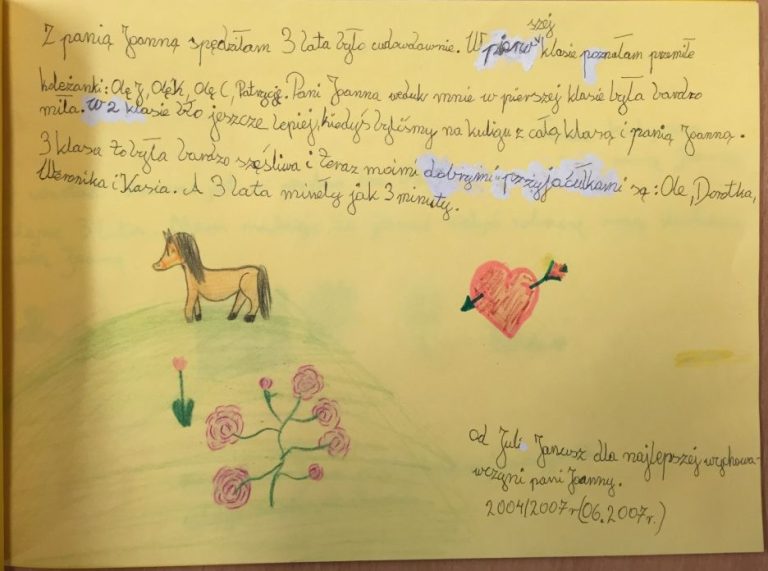 Z panią Joanną spędziłam 3 lata było cudowdownie. W pierwszej klasie poznałam przemiłe
koleżanki: Olę J, Olę K, Olę C, Patrycję. Pani Joanna według mnie w pierszej klasie była bardzo
miła. W 2 klasie bło jeszcze lepiej, kiedyś byliśmy na kuligu z całą klasą i panią Joanną.
3 klasa to była bardzo szęśliwa i teraz moimi dobrymi przyjaciułkami są: Ole, Dorotka,
Weronika i Kasia. A 3 lata mineły jak 3 minuty.
od Juli Janusz dla najlepszej wychowa-
wczyni pani Joanny.
2004/2007r (06.2007r.)